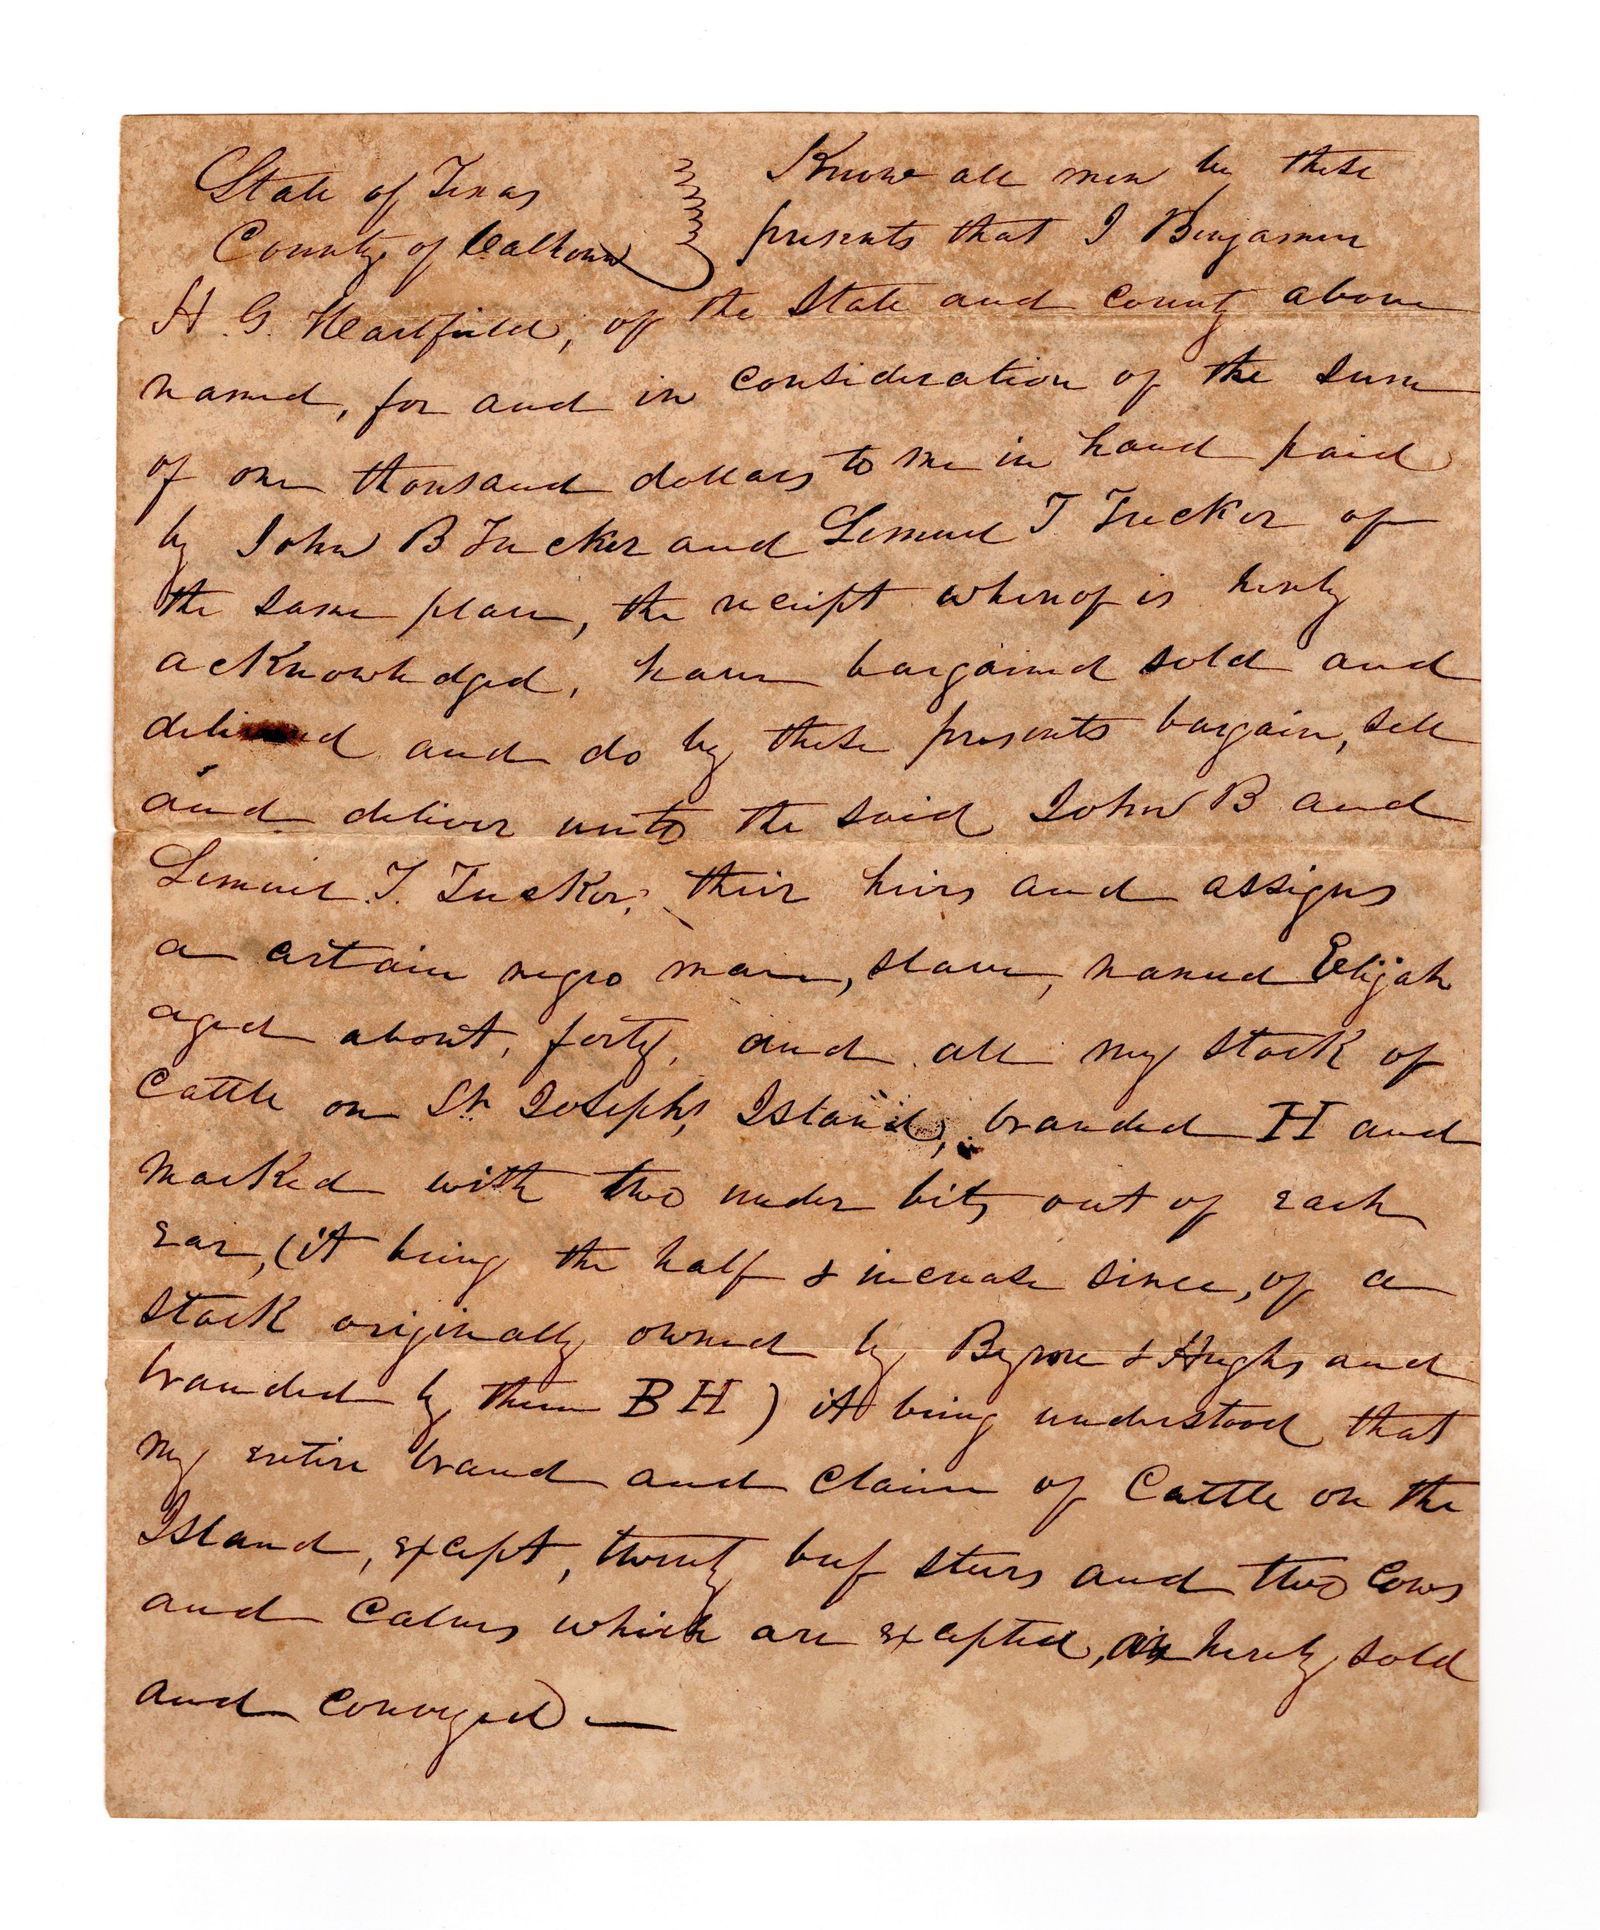 State of Texas
County of Calhoun
Know all men by these
presents that I Benjamin
H. G. Hartfield, of the State and County above
named, for and in consideration of the sum
of one thousand dollars to me in hand paid
by John B Tucker and Lemuel T Tucker of
the same place, the receipt whereof is hereby
acknowledged, have bargained sold and
delivered and do by these presents bargain, sell
and deliver unto the said John B and
Lemuel T. Tucker, their heirs and assigns
a certain negro man, slave, named Elijah
aged about, forty, and all my stock of
Cattle on St Josephs, Island, branded H and
marked with two under bits out of each
ear, (it being the half & increase since, of a
stock originally owned by Byrne & Hughs and
branded by them B H) it being understood that
my entire brand and claim of Cattle on the
Island, except, twenty beef steers and two Cows
and Calves which are excepted, are hereby sold
and conveyed —